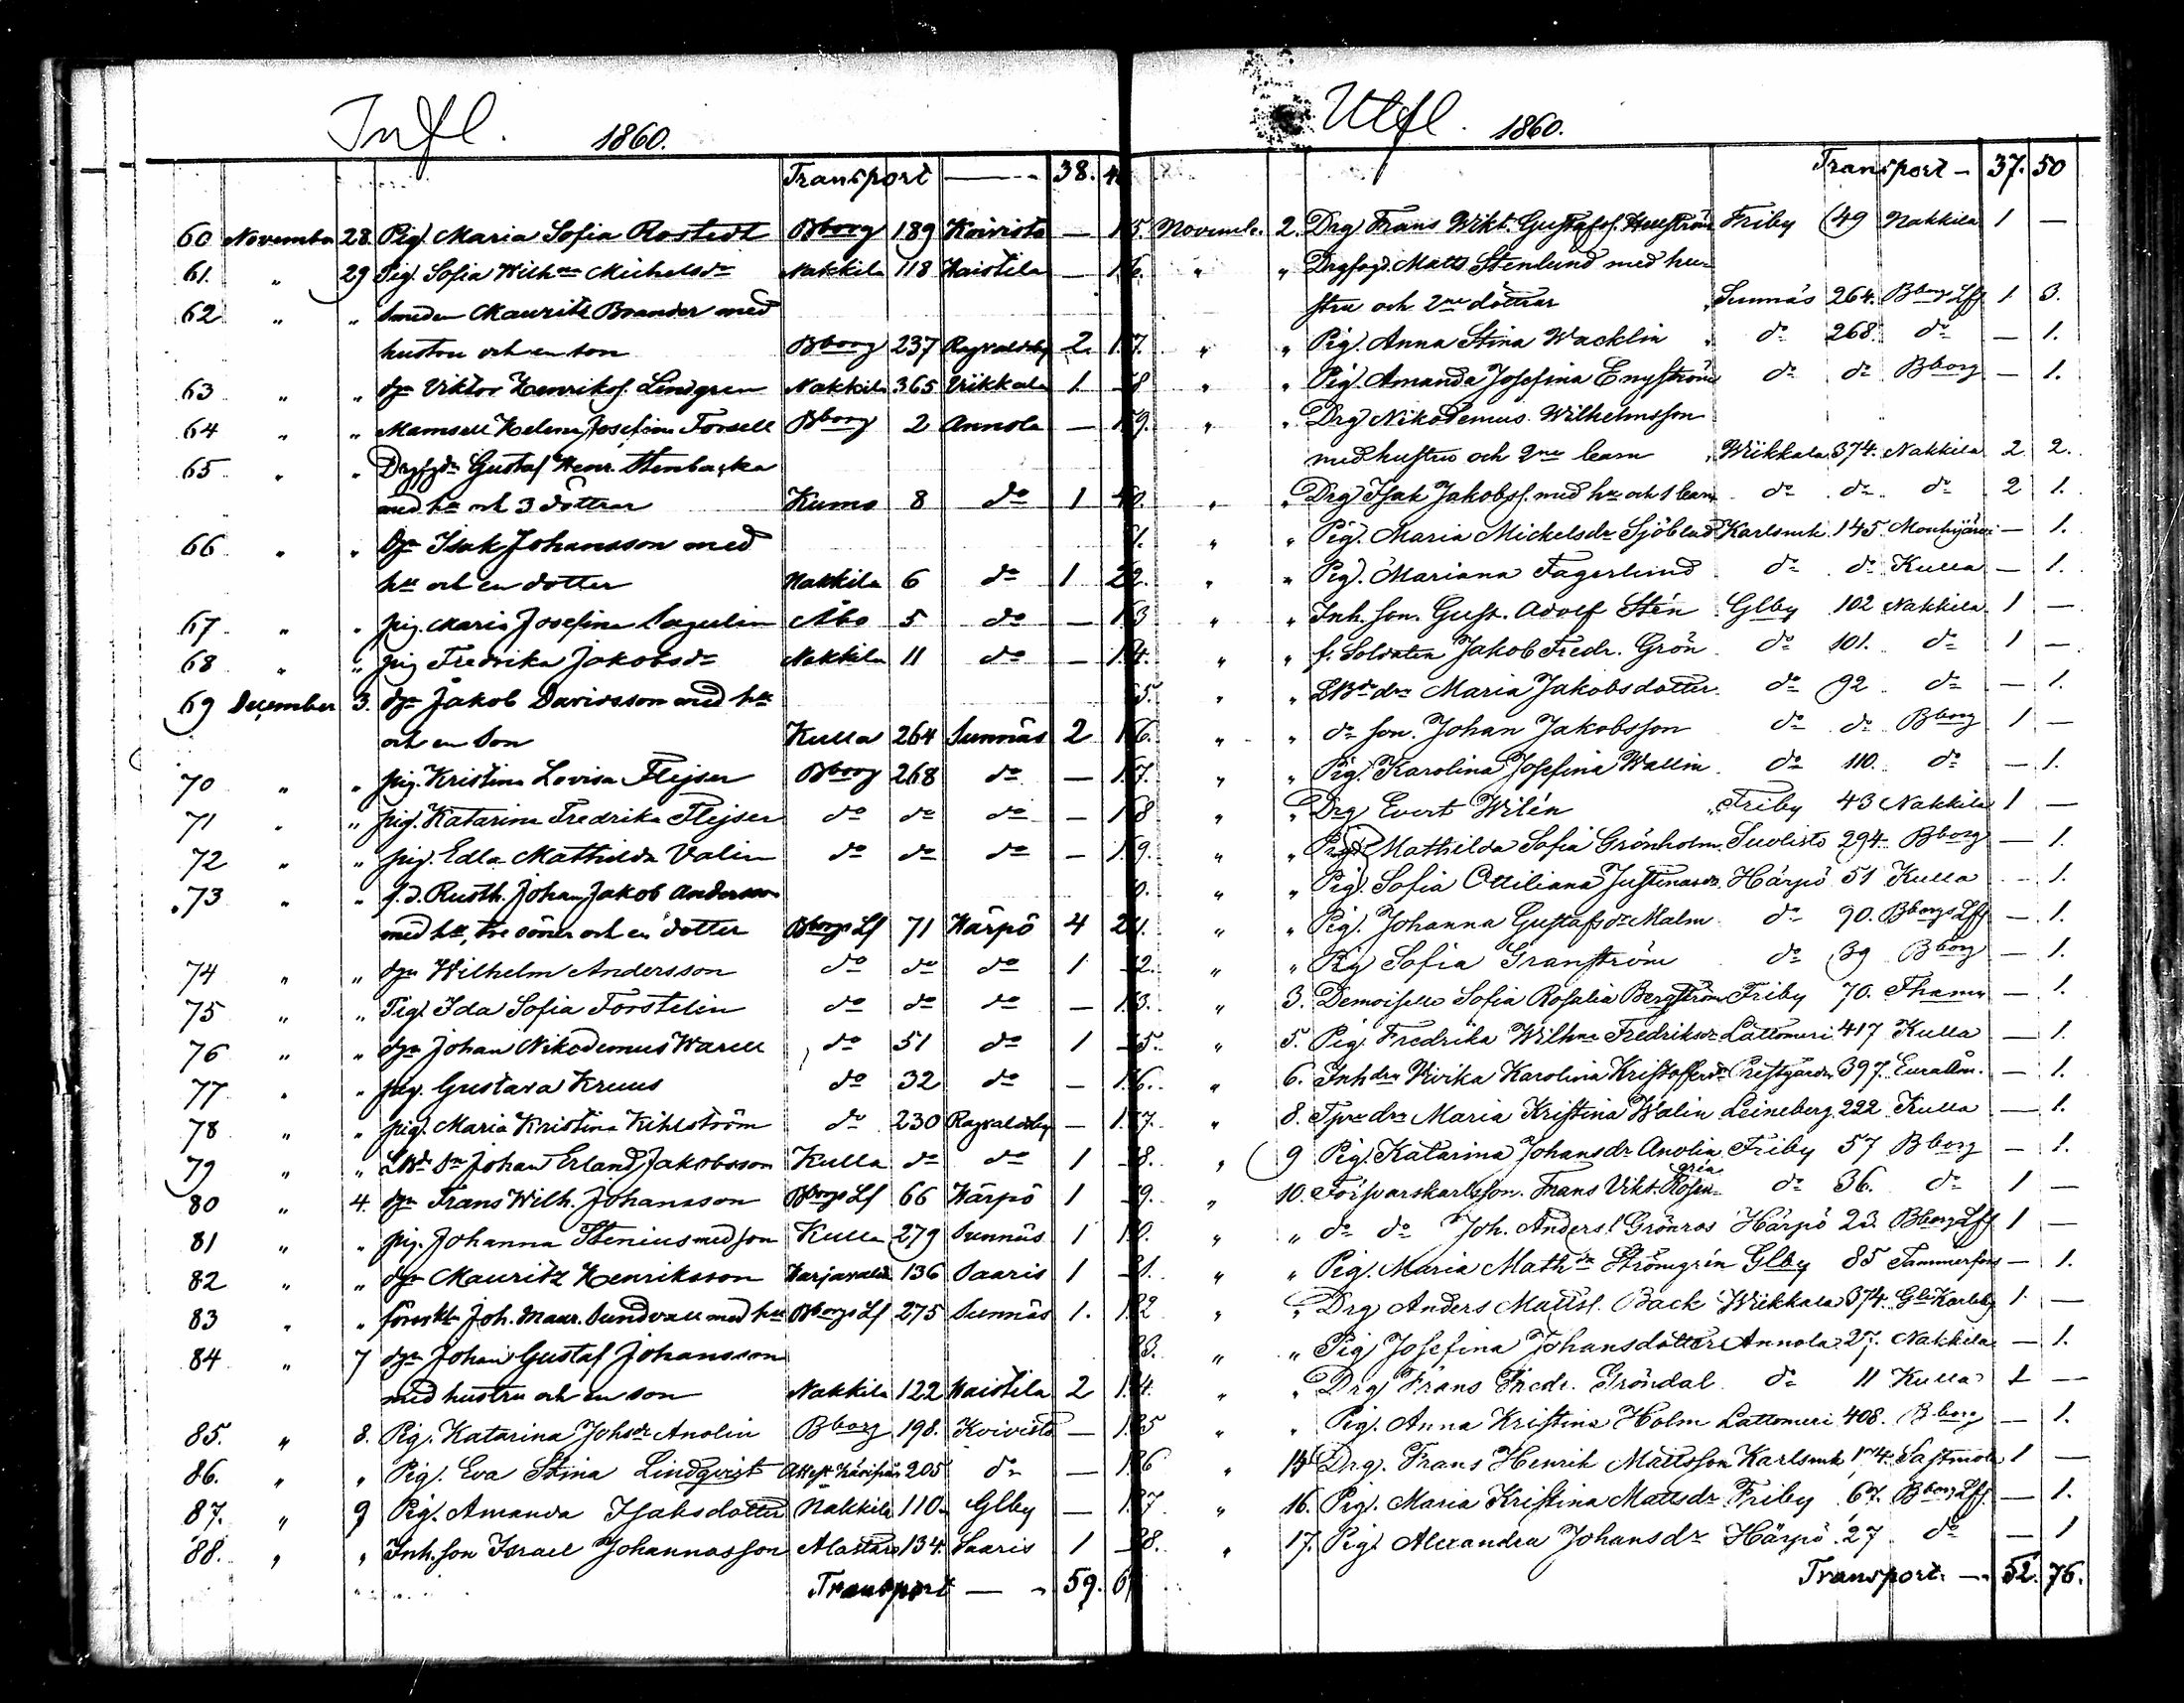 Infl. 1860.
Transport — 38.
60 November 28. Pig. Maria Sofia Rostedt Bborg 189 Koivisto —
61. " 29 Pig. Sofia Wilhna Michelsdr Nakkila 118 Haistila —
62 " " Smeden Mauritz Brander med
hustru och en son Bborg 237 Ragvaldsby 2.
63 " " dgn Viktor Henriksf. Lindgren Nakkila 365 Viikkala 1 —
64 " " Mamsell Helena Josefina Forsell Bborg 2 Annola —
65 " " Gustaf Henr. Stenbacka
med hu och 3 döttrar Kumo 8 do 1
66 " " Dgn Isak Johansson med
hu och en dotter Nakkila 6 do 1 2
67 " " pig. Maria Josefina Åbo 5 do —
68 " " pig Fredrika Jakobsdr Nakkila 11 do —
69 December 3. dgn Jakob Davidsson med hu
och en son Kulla 264 Sunnäs 2
70 " " pig. Kristina Lovisa Flejser Bborg 268 do —
71 " " pig. Katarina Fredrika Flejser do do do —
72 " " pig. Edla Mathilda Valin do do do —
73 " " f.d. Rusth. Johan Jakob Andersson
med hu, tre söner och en dotter Bborgs Lf 71 Härpö 4 2
74 " " dgn Wilhelm Andersson do do do 1 —
75 " " Pig. Ida Sofia Forstelin do do do —
76 " " dgn Johan Nikodemus Warell do 51 do 1 —
77 " " pig. Gustava Kruus do 32 do —
78 " " pig. Maria Kristina Kihlström do 230 Ragvaldsby —
79 " " Johan Erland Jakobsson Kulla do do 1 —
80 " 4. dgn Frans Wilh. Johansson Bborgs Lf 66 Härpö 1 —
81 " " pig. Johanna Stenius med son Kulla 279 Sunnäs 1
82 " " dgn Mauritz Henriksson Harjavalta 136 Saaris 1 —
83 " " Joh. Maur. Sundvall med hu Bborgs Lf 275 Sunnäs 1.
84 " 7 dgn Johan Gustaf Johansson
med hustru och en son Nakkila 122 Haistila 2
85. " 8. Pig. Katarina Johsdr Anolin Bborg 198. Koivisto —
86. " " Pig. Eva Stina Lindqvist 205 do —
87. " 9 Pig. Amanda Isaksdotter Nakkila 110 Glby —
88. " " Inh. son Israel Johannasson Alastaro 134. Saaris 1 —
Transport — 59.
Utfl. 1860.
Transport — 37. 50
5. Novemb. 2. Drg Frans Wikt. Gustafsf. Friby 49 Nakkila 1 —
6. " " Matts Stenlund med hu-
stru och 2ne döttrar Sunnäs 264. Bborgs Lff 1 3.
7. " " Pig. Anna Stina Wacklin do 268. do — 1.
8 " " Pig. Amanda Josefina Engström do do Bborg — 1.
9. " " Drg Nikodemus Wilhelmsson
med hustru och 2ne barn Wiikkala 374. Nakkila 2 2.
0. " " Drg Isak Jakobsf. med hu och 1 barn do do do 2 1.
1. " " Pig. Maria Mickelsdr Sjöblad Karlsmk 145. Mouhijärvi — 1.
2. " " Pig. Mariana Fagerlund do do Kulla — 1.
3 " " Inh. son. Gust. Adolf Stén Glby 102 Nakkila 1 —
4. " " f. Soldaten Jakob Fredr. Grön do 101. do 1 —
5. " " Maria Jakobsdotter do 92 do — 1.
6. " " do son. Johan Jakobsson do do Bborg 1 —
7. " " Pig. Karolina Josefina Wallin do 110. do — 1.
8 " " Drg Evert Wilén Friby 43 Nakkila 1 —
9. " " Mathilda Sofia Grönholm Suolisto 294. Bborg — 1.
0. " " Pig. Sofia Ottiliana Justinasdr Härpö 51 Kulla — 1.
1. " " Pig. Johanna Gustafsdr Malm do 90. Bborgs Lff — 1.
2. " " Pig Sofia Granström do 39 Bborg — 1.
3. " 3. Demoiselle Sofia Rosalia Bergström Friby 70. — 1.
5. " 5. Pig. Fredrika Wilhna Fredriksdr Lattomeri 417 Kulla — 1.
6. " 6. Inhdrn Vivika Karolina Kristoffersdr Prestgården 397. — 1.
7. " 8. Maria Kristina Walin Leineberg 222 Kulla — 1.
8. " 9 Pig. Katarina Johansdr Anolin Friby 57 Bborg — 1.
9. " 10. Försvarskarlsson. Frans Vikt. do 36. do 1 —
0. " " do do Joh. Andersf. Grönros Härpö 23. Bborgs Lff 1 —
1. " " Pig. Maria Mathda Strömgrén Glby 85 Tammerfors — 1.
2 " " Drg Anders Mattsf. Back Wiikkala 374. Gla Karleby 1 —
3. " " Pig Josefina Johansdotter Annola 27. Nakkila — 1.
4. " " Drg Frans Fredr. Gröndal do 11 Kulla 1 —
5 " " Pig. Anna Kristina Holm Lattomeri 408. Bborg — 1.
6 " 15 Drg. Frans Henrik Mattsson Karlsmk 174. Sastmola 1 —
7 " 16. Pig. Maria Kristina Mattsdr Friby 67. Bborgs Lff — 1.
8. " 17. Pig. Alexandra Johansdr Härpö 27 do — 1
Transport. — 52. 76.